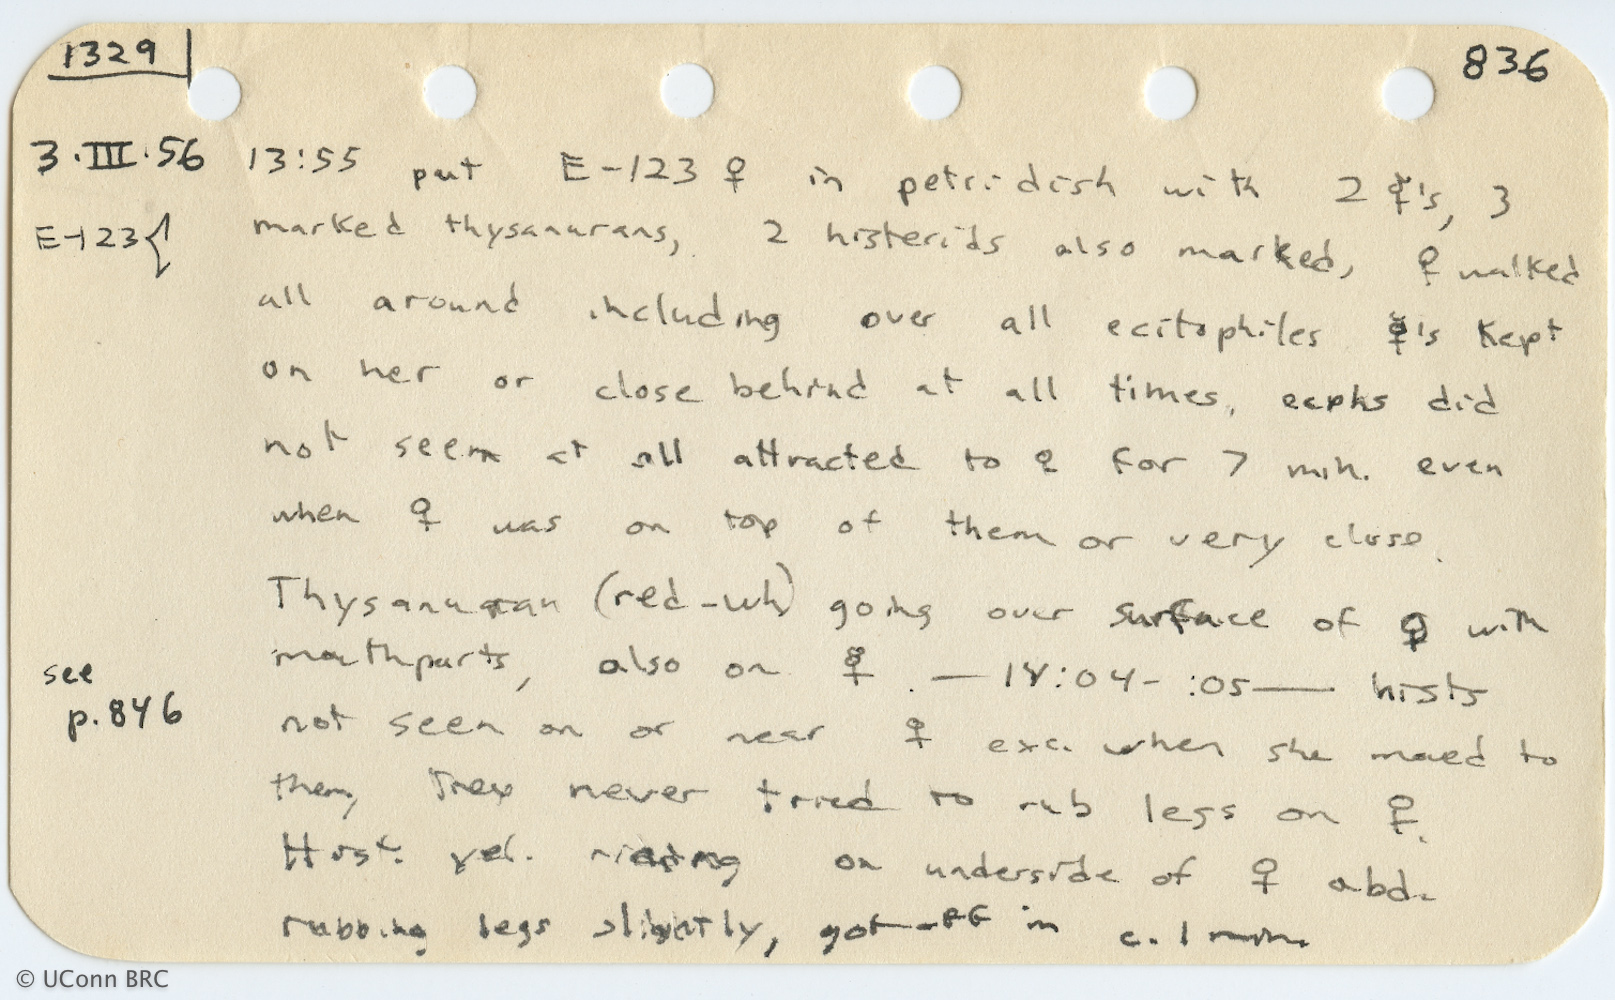 1329
836
3·III·56 13:55 put E-123 ♀ in petri dish with 2 ☿'s, 3
E-123{ marked thysanurans, 2 histerids also marked, ♀ walked
all around including over all ecitophiles ☿'s kept
on her or close behind at all times, ecphs did
not seem at all attracted to ♀ for 7 min. even
when ♀ was on top of them or very close.
Thysanuran (red-wh) going over surface of ♀ with
see mouthparts, also on ☿. — 14:04-:05 — hists
p.846 not seen on or near ♀ exc. when she moved to
them, They never tried to rub legs on ♀.
Hist. yel. riding on underside of ♀ abd.
rubbing legs slightly, got off in c. 1 min.
© UConn BRC